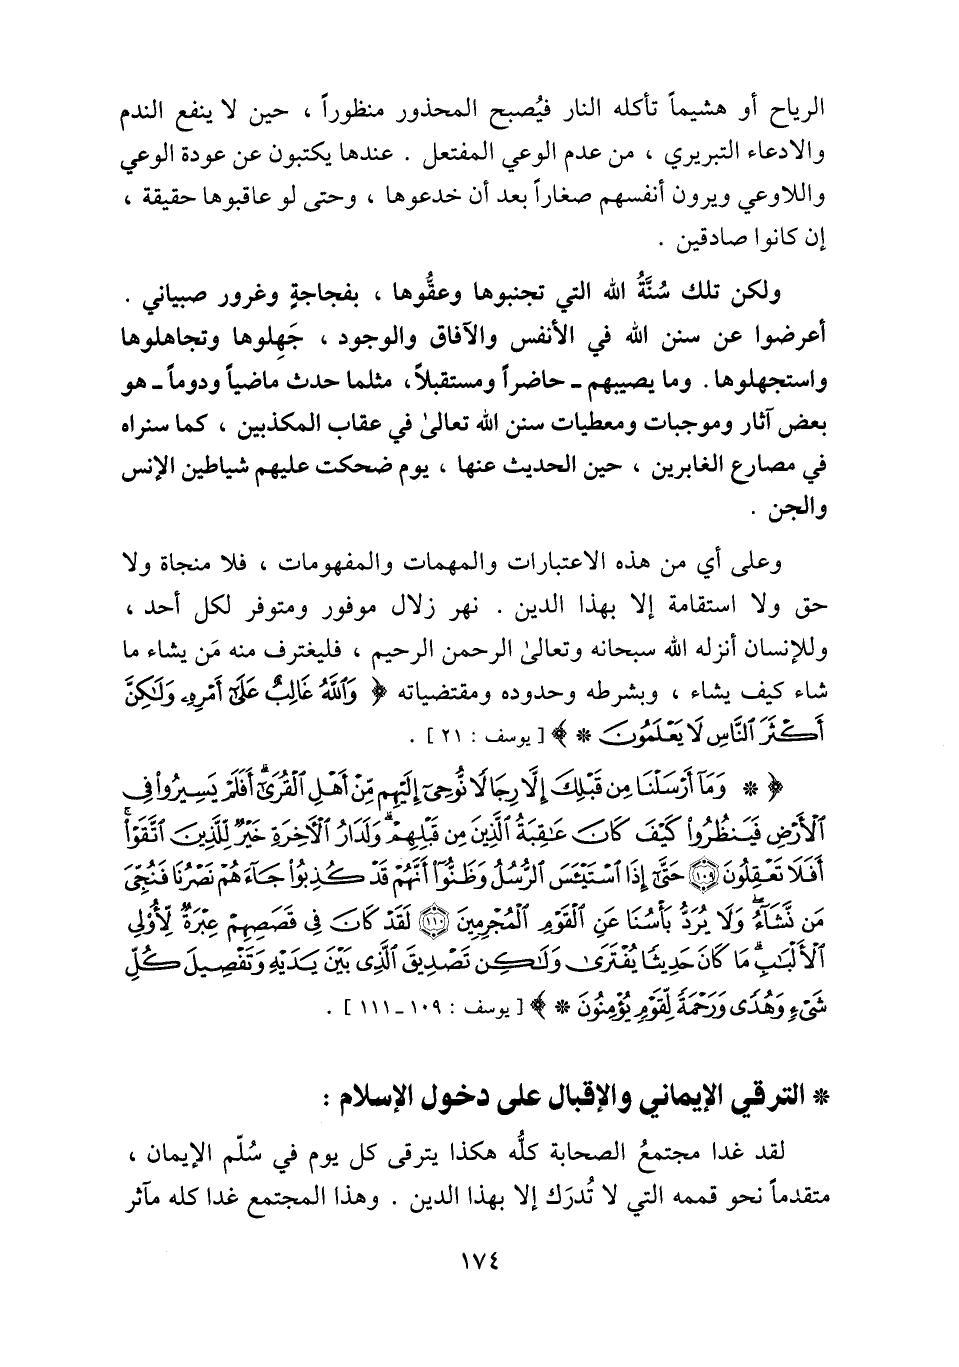 الرياح أو هشيماً تأكله النار فيُصبح المحذور منظوراً ، حين لا ينفع الندم
والادعاء التبريري ، من عدم الوعي المفتعل . عندها يكتبون عن عودة الوعي
واللاوعي ويرون أنفسهم صغاراً بعد أن خدعوها ، وحتى لو عاقبوها حقيقة ،
إن كانوا صادقين .
ولكن تلك سُنَّةُ الله التي تجنبوها وعقُّوها ، بفجاجةٍ وغرور صبياني .
أعرضوا عن سنن الله في الأنفس والآفاق والوجود ، جَهِلوها وتجاهلوها
واستجهلوها. وما يصيبهم ـ حاضراً ومستقبلاً، مثلما حدث ماضياً ودوماً ـ هو
بعض آثار وموجبات ومعطيات سنن الله تعالىٰ في عقاب المكذبين ، كما سنراه
في مصارع الغابرين ، حين الحديث عنها ، يوم ضحكت عليهم شياطين الإنس
والجن .
وعلى أي من هذه الاعتبارات والمهمات والمفهومات ، فلا منجاة ولا
حق ولا استقامة إلا بهذا الدين . نهر زلال موفور ومتوفر لكل أحد ،
وللإنسان أنزله الله سبحانه وتعالىٰ الرحمن الرحيم ، فليغترف منه مَن يشاء ما
شاء كيف يشاء ، وبشرطه وحدوده ومقتضياته ﴿ وَٱللَّهُ غَالِبٌ عَلَىٰٓ أَمْرِهِۦ وَلَٰكِنَّ
أَكْثَرَ ٱلنَّاسِ لَا يَعْلَمُونَ * ﴾ [ يوسف : ٢١ ] .
﴿ * وَمَآ أَرْسَلْنَا مِن قَبْلِكَ إِلَّا رِجَالًا نُّوحِىٓ إِلَيْهِم مِّنْ أَهْلِ ٱلْقُرَىٰٓۗ أَفَلَمْ يَسِيرُوا۟ فِى
ٱلْأَرْضِ فَيَنظُرُوا۟ كَيْفَ كَانَ عَٰقِبَةُ ٱلَّذِينَ مِن قَبْلِهِمْۗ وَلَدَارُ ٱلْءَاخِرَةِ خَيْرٌ لِّلَّذِينَ ٱتَّقَوْا۟ۚ
أَفَلَا تَعْقِلُونَ ١٠٩ حَتَّىٰٓ إِذَا ٱسْتَيْـَٔسَ ٱلرُّسُلُ وَظَنُّوٓا۟ أَنَّهُمْ قَدْ كُذِبُوا۟ جَآءَهُمْ نَصْرُنَا فَنُجِّىَ
مَن نَّشَآءُۖ وَلَا يُرَدُّ بَأْسُنَا عَنِ ٱلْقَوْمِ ٱلْمُجْرِمِينَ ١١٠ لَقَدْ كَانَ فِى قَصَصِهِمْ عِبْرَةٌ لِّأُو۟لِى
ٱلْأَلْبَٰبِۗ مَا كَانَ حَدِيثًا يُفْتَرَىٰ وَلَٰكِن تَصْدِيقَ ٱلَّذِى بَيْنَ يَدَيْهِ وَتَفْصِيلَ كُلِّ
شَىْءٍ وَهُدًى وَرَحْمَةً لِّقَوْمٍ يُؤْمِنُونَ * ﴾ [ يوسف : ١٠٩ ـ ١١١ ] .
* الترقي الإيماني والإقبال على دخول الإسلام :
لقد غدا مجتمعُ الصحابة كلُّه هكذا يترقى كل يوم في سُلّم الإيمان ،
متقدماً نحو قممه التي لا تُدرَك إلا بهذا الدين . وهذا المجتمع غدا كله مآثر
١٧٤